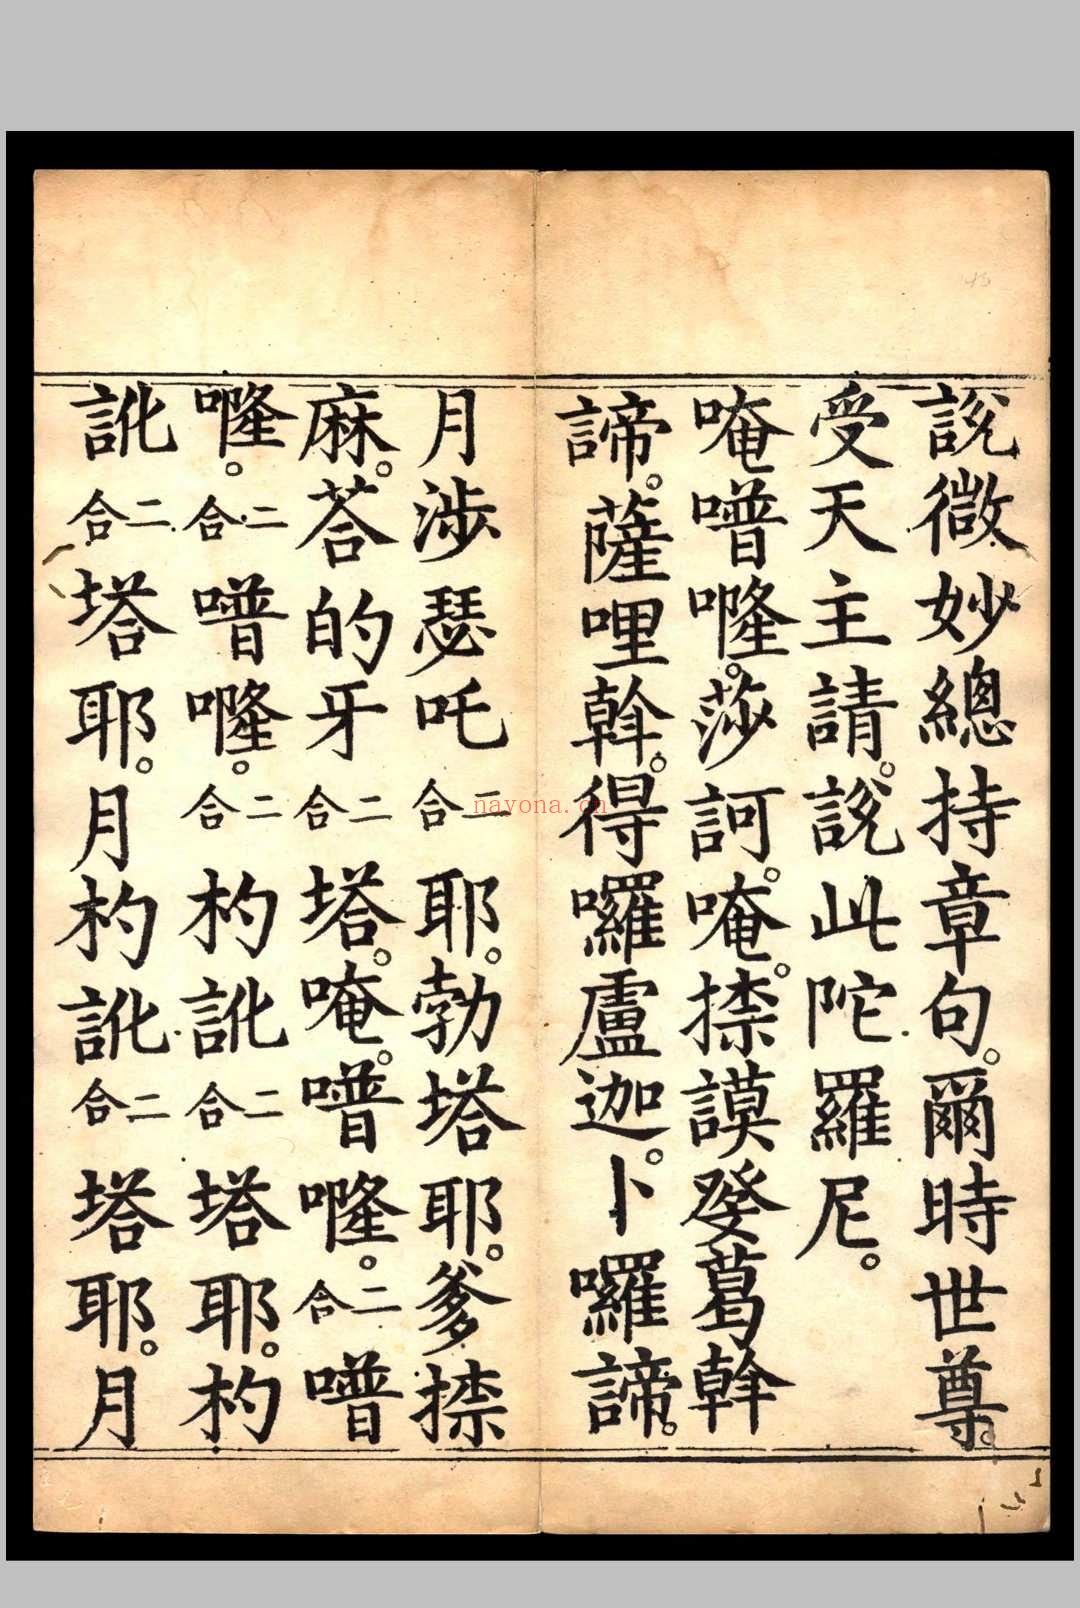 說微妙總持章句。爾時世尊。
受天主請。說此陀羅尼。
唵噆㘕。莎訶。唵。捺謨癹葛斡
諦。薩哩斡。得囉盧迦。卜囉諦。
月涉瑟吒二合耶。勃塔耶。爹捺
麻。荅的牙二合塔。唵。噆㘕。二合噆
㘕。二合噆㘕。二合杓訛二合塔耶。杓
訛二合塔耶。月杓訛二合塔耶。月
nayona.cn